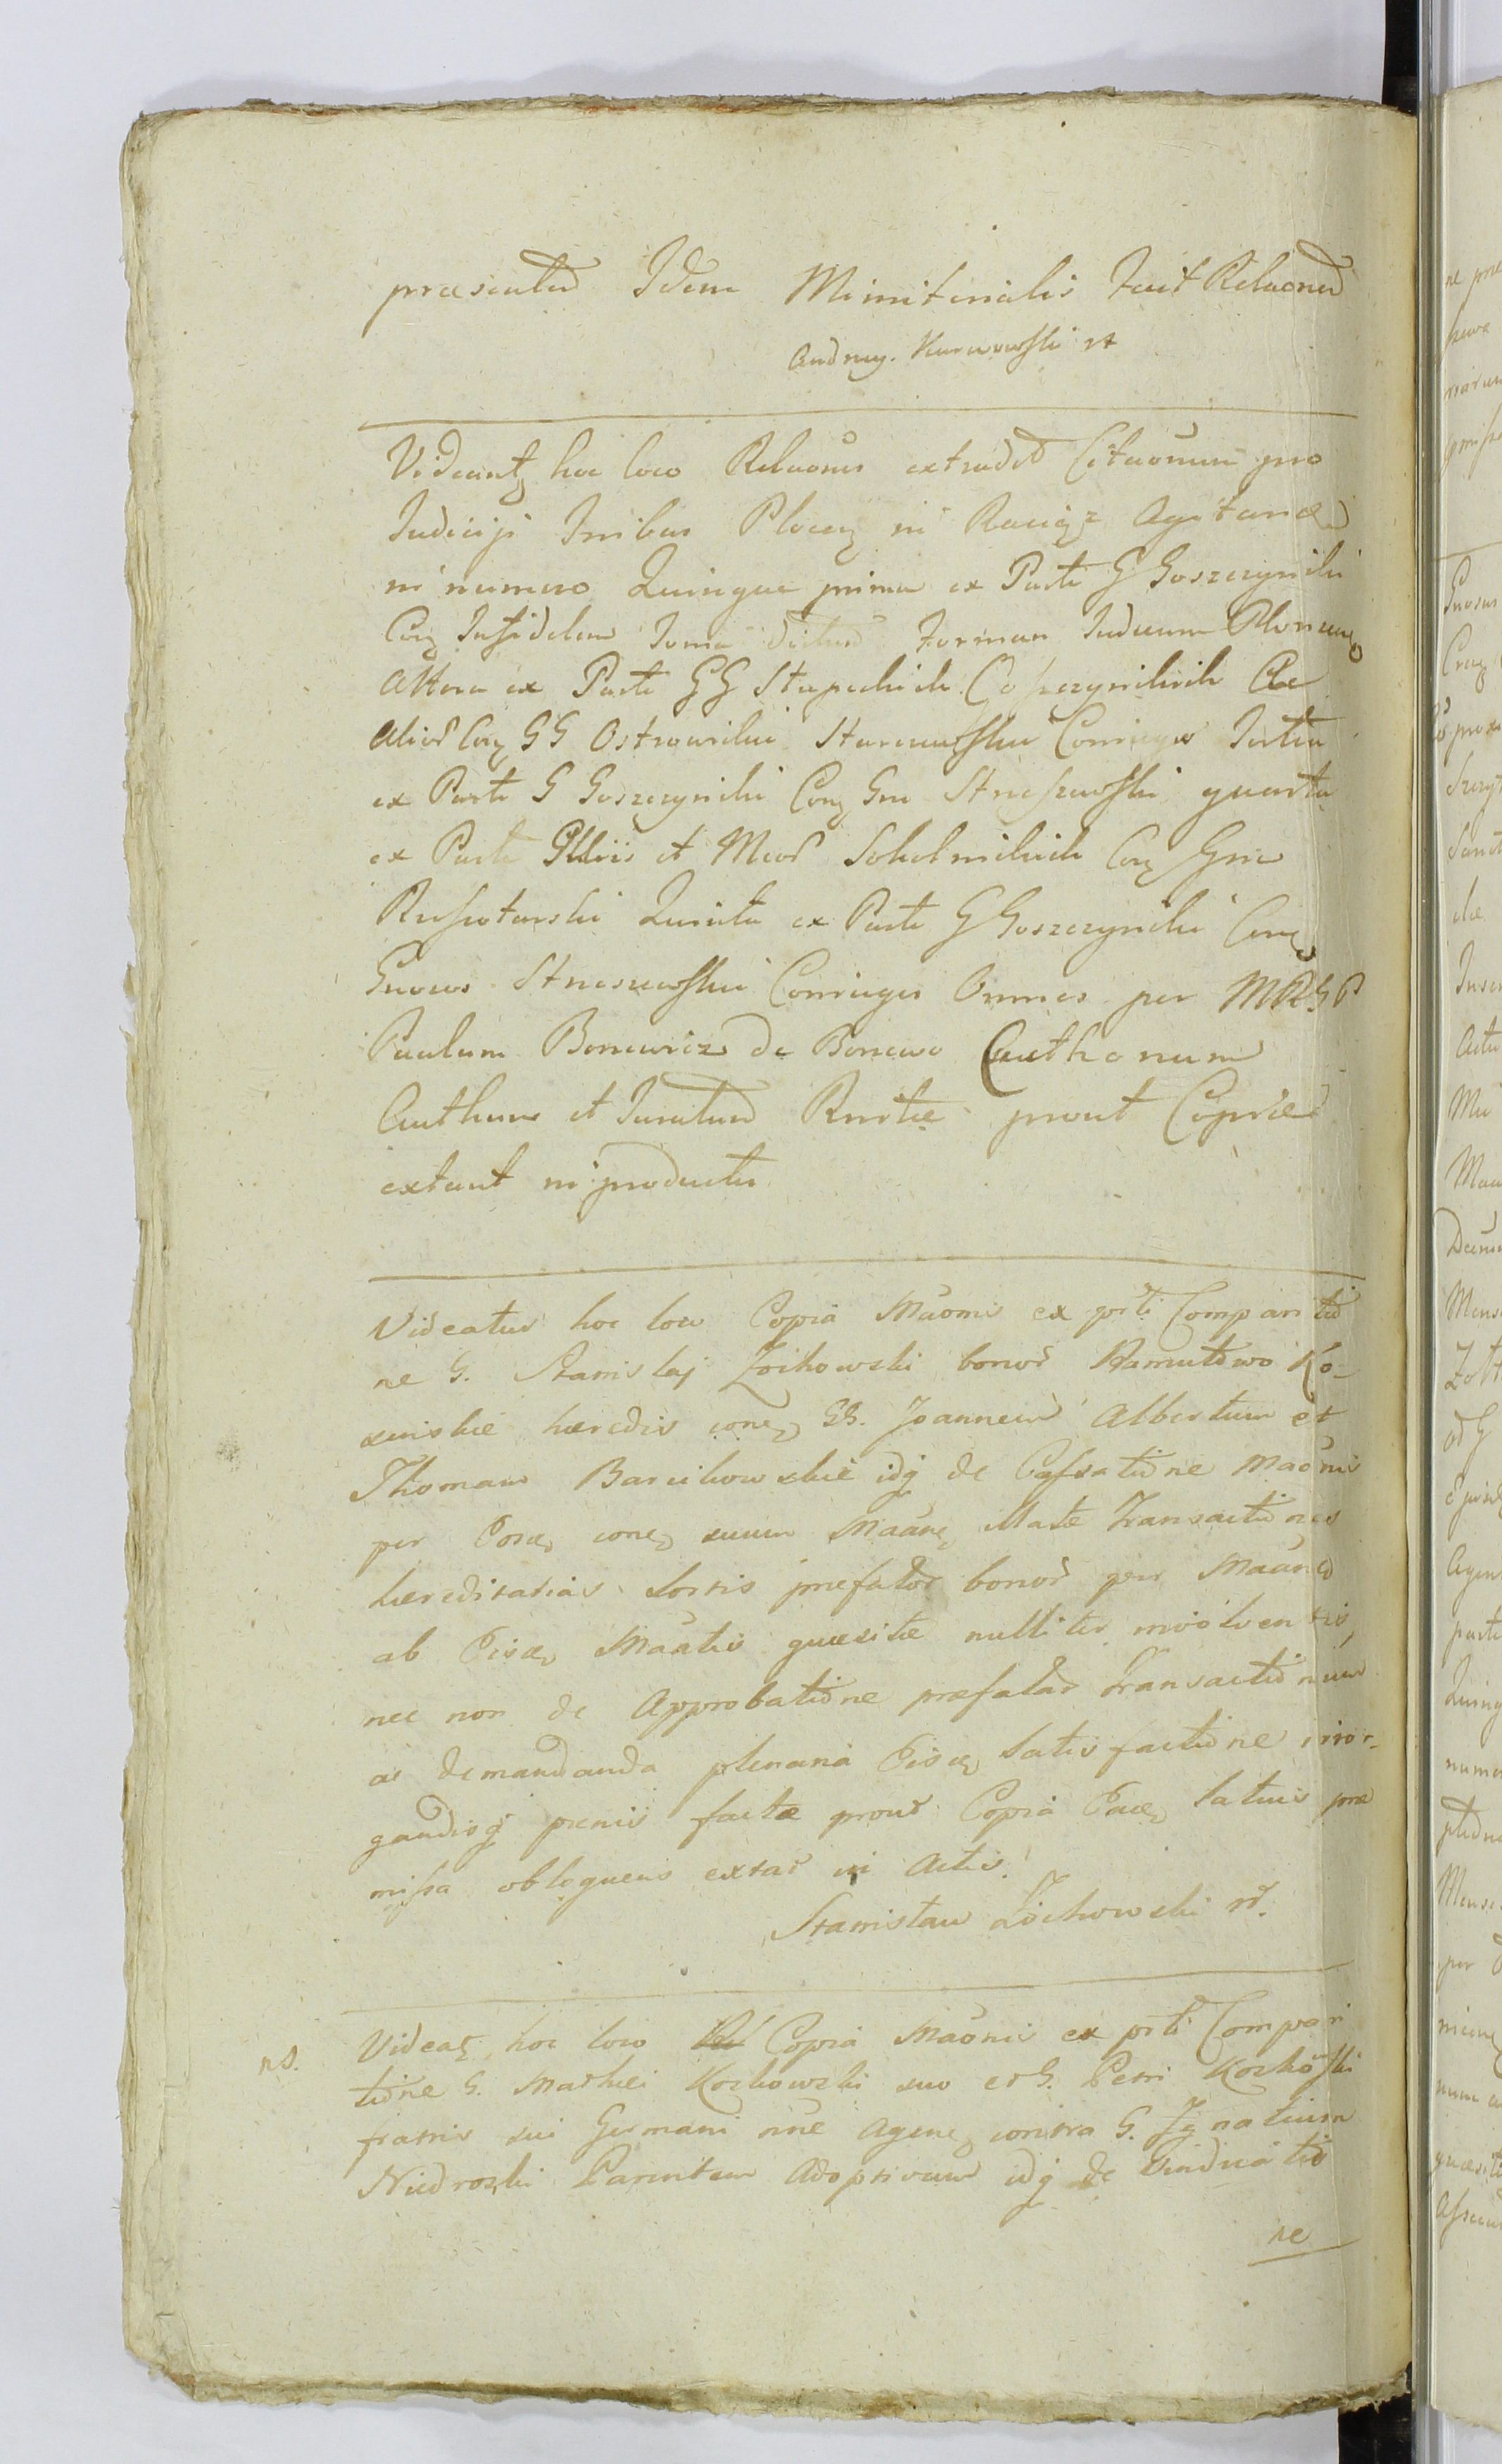 præsentũ Idem Ministerialis Fecit Relaonem
Andrzey Kurowski st
Videant hoc loco Relaones extradit Citaonum pro
Iudicijs Tribus Plocen in Raciąz Agitand
in numero Quinque prima ex Parte G Goszczynski
Con Infidelem Toma dictum Forman Iudeum Plonscen
Altera ex Parte GG Stupeckich Goszczynskich Ac
Alior Con GG Ostrowskie Conjuges Tertia
ex Parte G Goszczynski Con Gm Streszewski quarta
ex Parte Illris et Mcor Sokolnickich Con Gm
Rusciotarski Quinta ex Parte G Goszczynski Con
Gnosos Streszewskie Conjuges Omnes per MRGP
Paulum Boniewicz de Boniewo Authenum
Authum et Juratum Rnrtæ prout Copiæ
extant in producto
Videatur hoc loco Copia Mãonis ex prti Comparitio
ne G. Stanislai Żochowski bonor Ramutowo Ko-
ziuskie hæredis con GG. Joannem Albertum et
Thomam Barcikowskie idq de Cassatione Mãonis
per Eosd con suum Maan illatæ Transactiones
hæreditarias Sortis præfator bonor per Maan
ab Eisd Maatis quæsitæ nulliter involventis,
nec non de Approbatione præfatar Transactionum
ac demandanda plenaria Eisd Satisfactione irror-
gandisq pænis factæ prout Copia Eaed latius præ
missa obloquens extat in Actis.
Stanisław Żochowski st.
ns. Videat hoc loco Copia Mãonis ex prti Compari
tione G. Mathei Kozkowski suo et G. Petri Kozkowski
fratris sui Germani nne Agen contra G. Ignatium
Niedroski Parentem Adoptivum idq de Vindicatio
ne